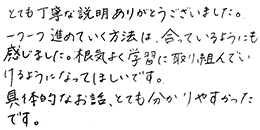 とても丁寧な説明ありがとうございました。
一つ一つ進めていく方法は、合っているようにも
感じました。根気よく学習に取り組んでい
けるようになってほしいです。
具体的なお話、とても分かりやすかった
です。